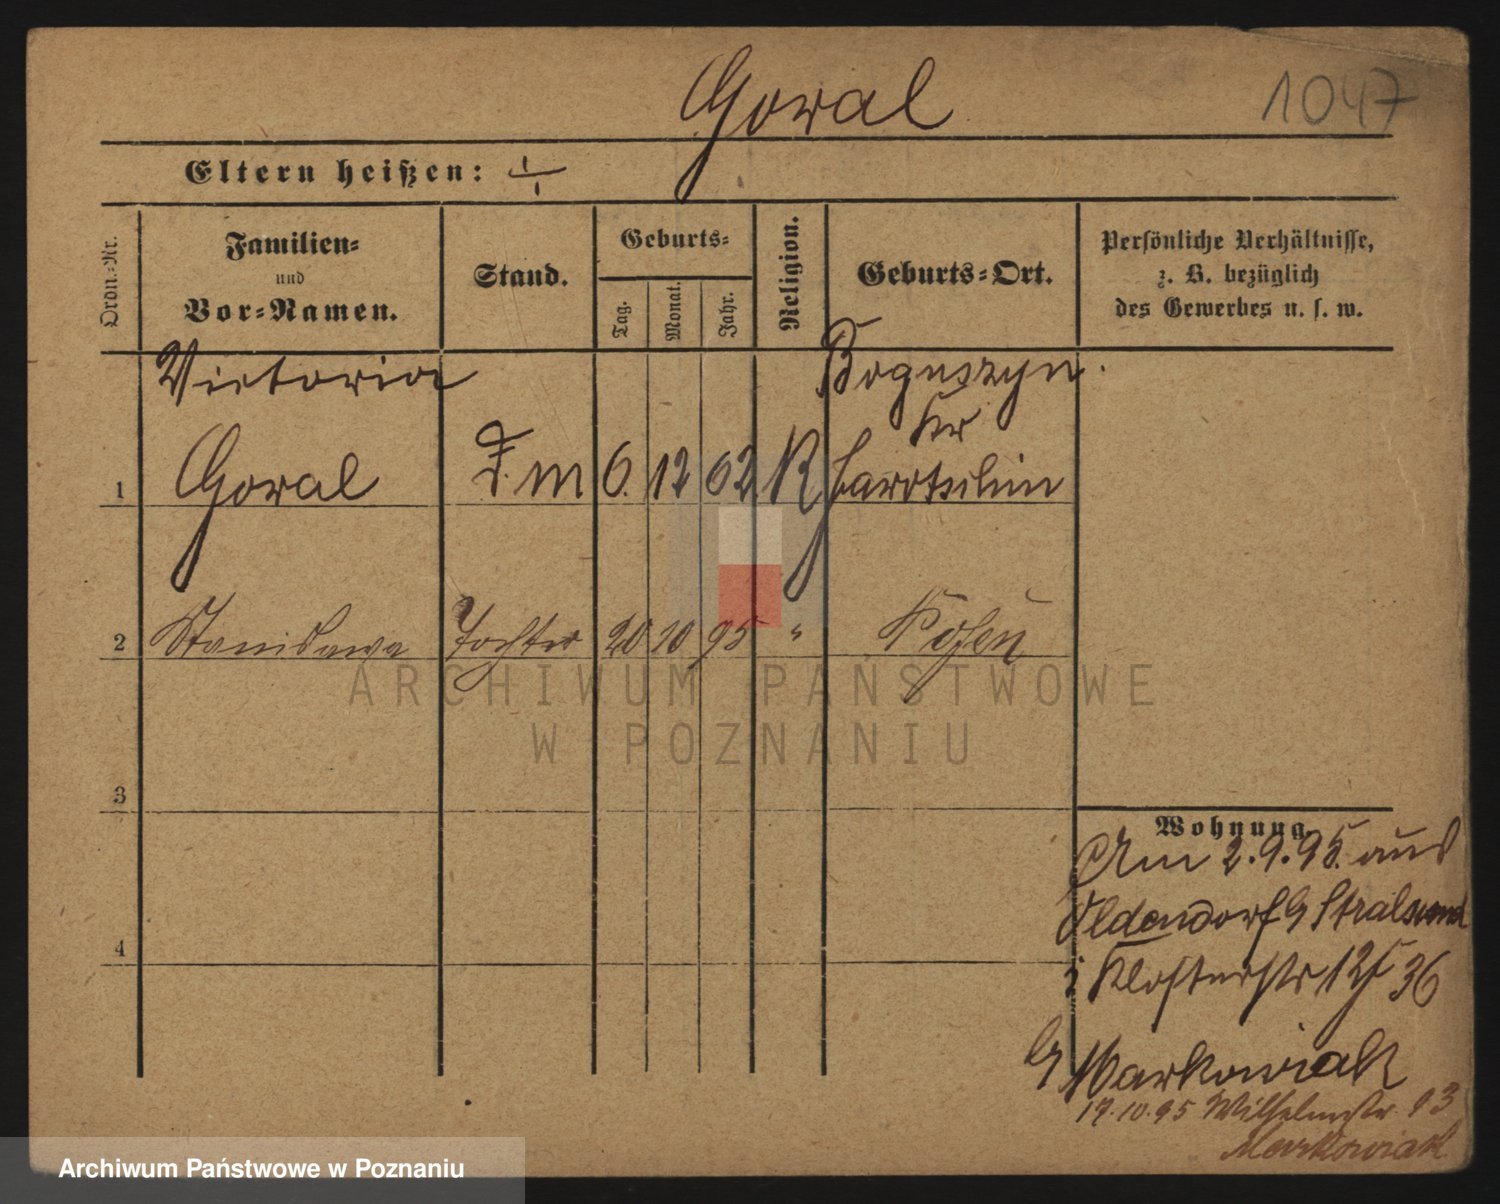 Goral
1047
Eltern heißen:
Ordn.-Nr.
Familien-
und
Vor-Namen.
Stand.
Geburts-
Tag.
Monat.
Jahr.
Religion.
Geburts-Ort.
Persönliche Verhältnisse,
z. B. bezüglich
des Gewerbes u. s. w.
Victoria
Boguszyn.
Kr
1 Goral D. m 6. 12 62 R Jarotschin
2 Stanislawa Tochter 20 10 95 " Posen
ARCHIWUM PAŃSTWOWE
W POZNANIU
3
4
Wohnung
Am 2.9.95. aus
Oldendorf b Stralsund
Klosterstr 12 36
b Markowiak
17.10.95 Wilhelmstr. 13
Markowiak
Archiwum Państwowe w Poznaniu